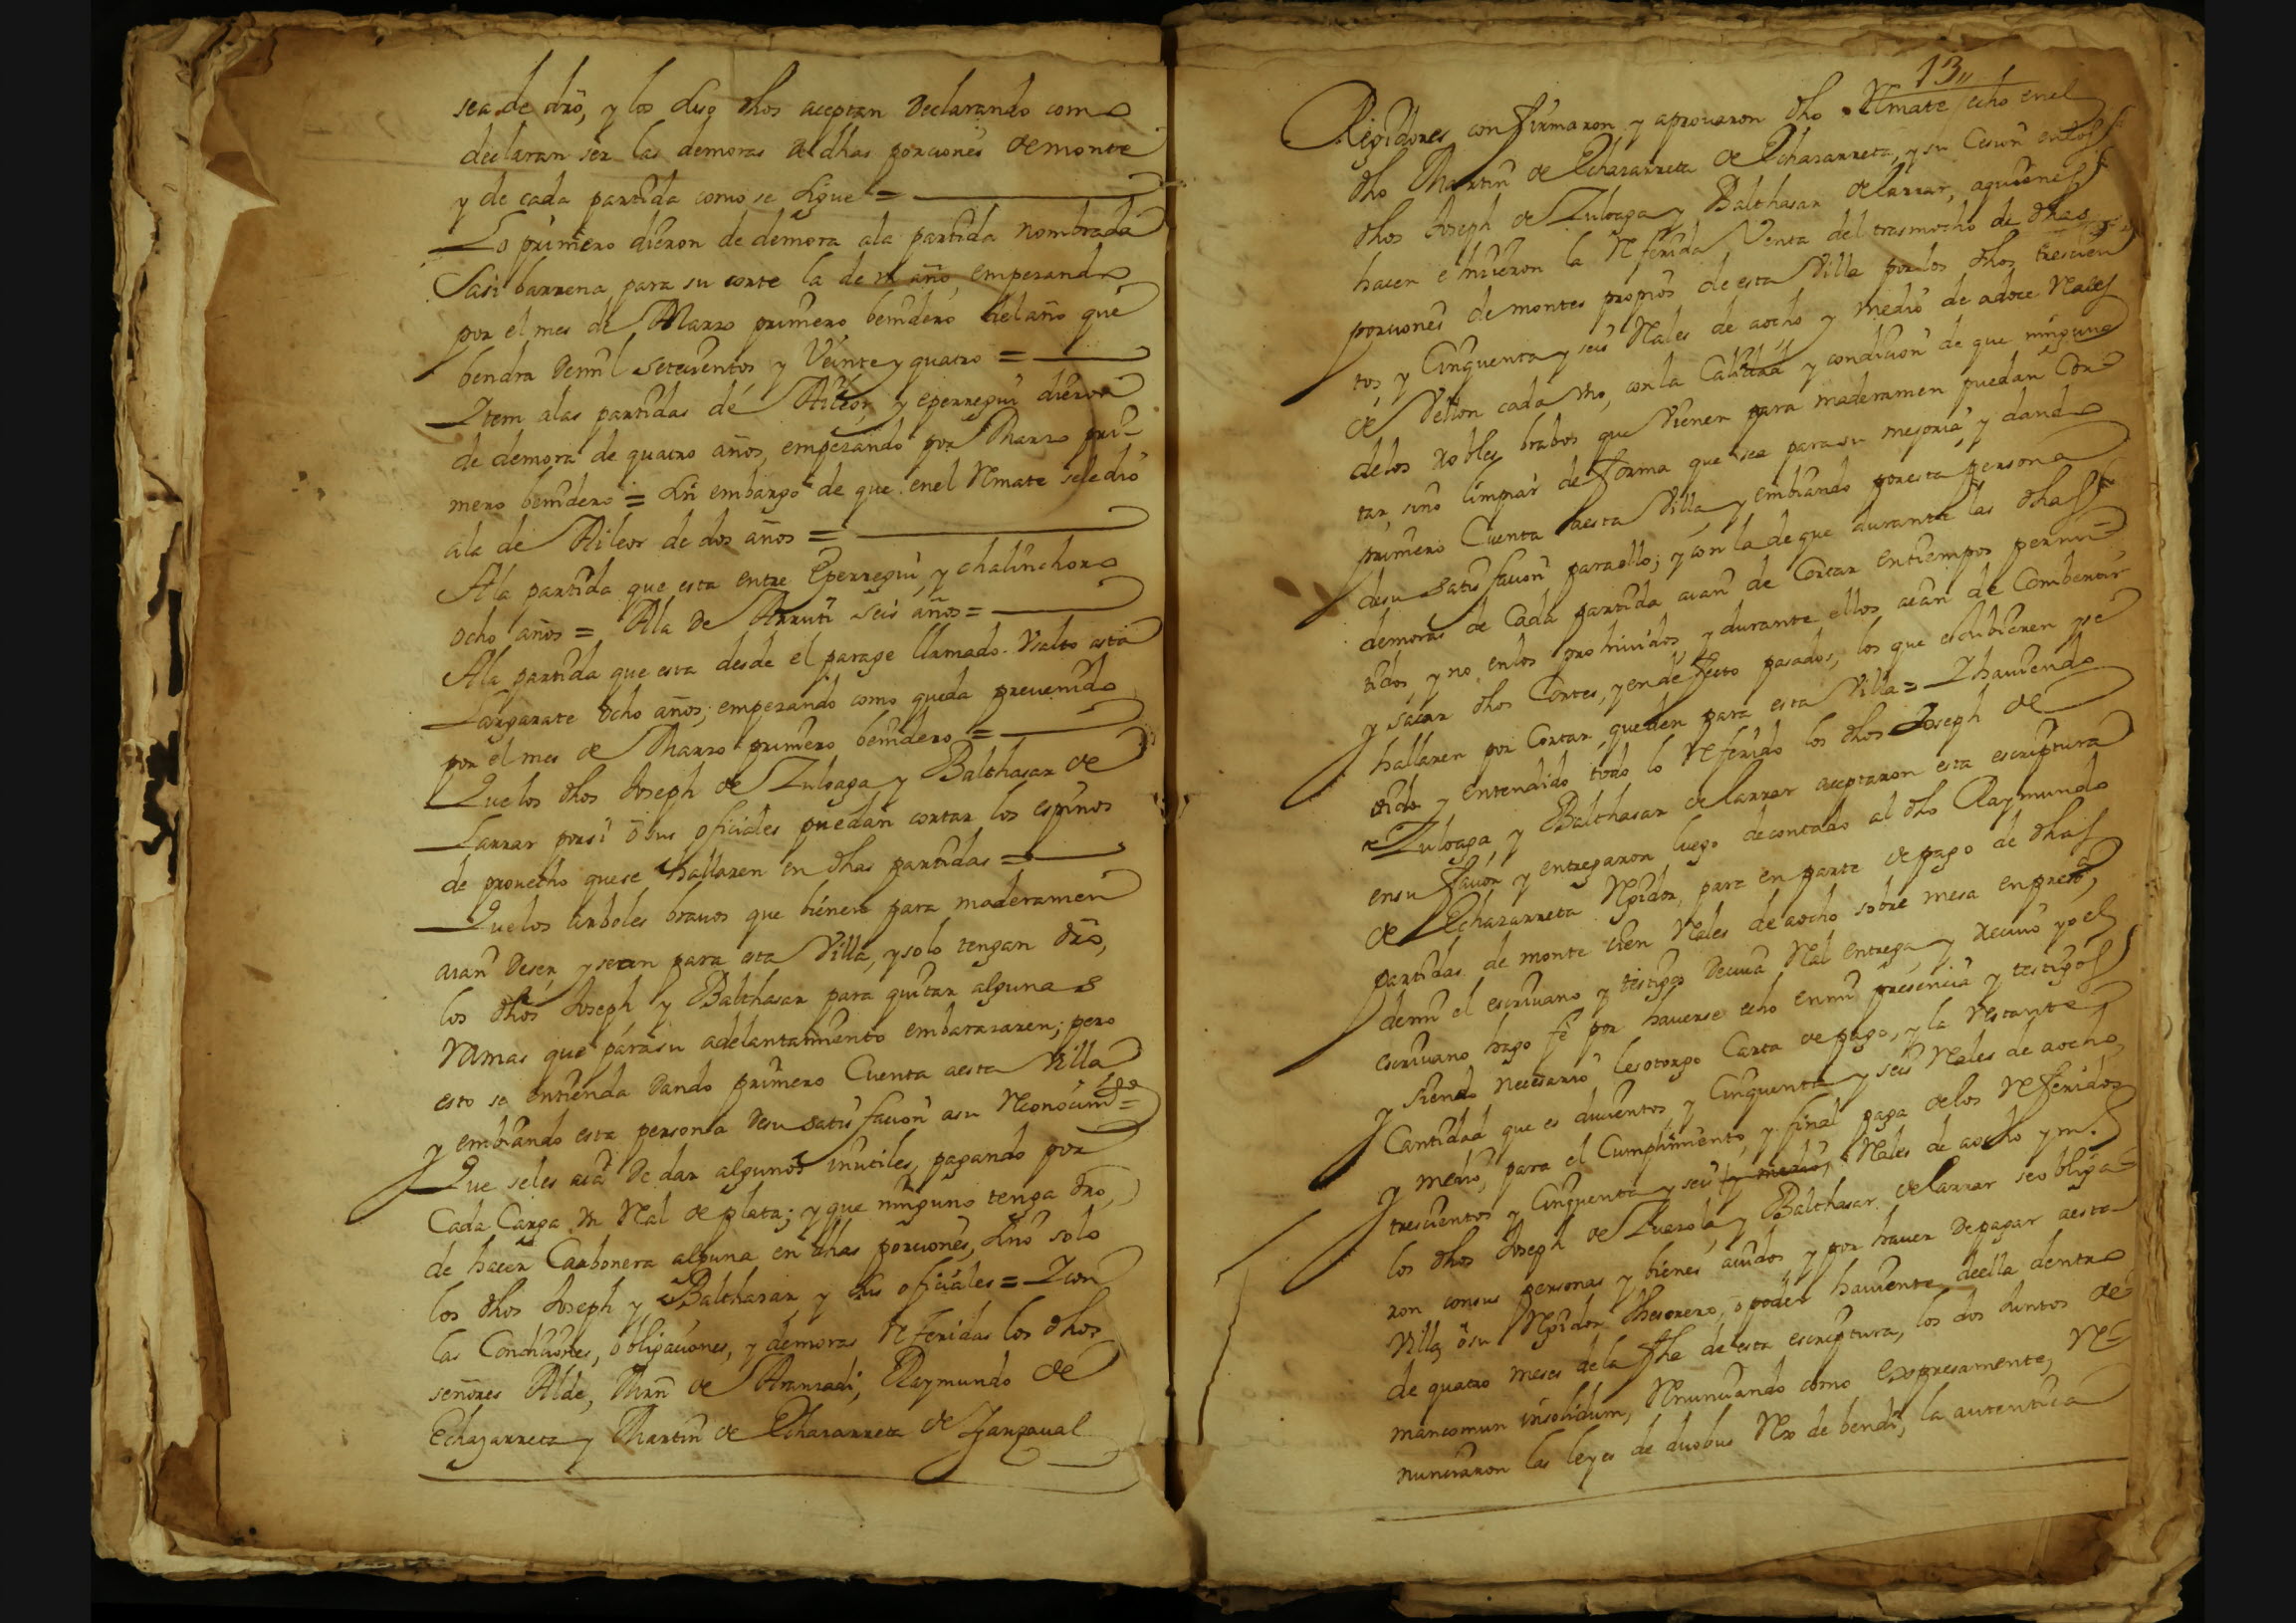 sea de dro, y los suso dhos aceptan declarando como
declaran ser las demoras de dhas porciones de monte
y de cada partida como se sigue =
Lo primero dieron de demora ala partida nombrada
Sasi barrena para su corte la de un año, empezando
por el mes de Marzo primero benidero del año que
bendra de mil setecientos y Veinte y quatro =
Item alas partidas de Aileor, y eperregui dieron
de demora de quatro años, empezando por Marzo pri-
mero benidero = sin embargo de que enel Remate sele dio
ala de Aileor de dos años =
Ala partida que esta entre Eperregui, y chalinchoro
ocho años = Ala de Arruti seis años =
Ala partida que esta desde el parage llamado Usalto asta
ocho años; empezando como queda prevenido
por el mes de Marzo primero benidero =
Que los dhos Joseph de Zuloaga y Balthasar de
Larrar por si o sus oficiales puedan cortar los espinos
de provecho que se hallaren en dhas partidas =
Que los arboles bravos que tienen para maderamen
aian de ser, y sean para esta Villa, y solo tengan dro,
los dhos Joseph y Balthasar para quitar algunas
Ramas que para su adelantamiento embarazaren; pero
esto se entienda dando primero Cuenta aesta Villa
y embiando esta persona de su satisfacion asu Reconocimto =
Que seles aia de dar algunos inutiles, pagando por
Cada Carga un Real de plata; y que ninguno tenga dro,
de hacer Carbonera alguna en dhas porciones, sino solo
los dhos Joseph y Balthasar y sus oficiales = I con
las Condiciones, obligaciones, y demoras Referidas los dhos
señores Alde, Mrn de Aranzadi, Raymundo de
Echazarreta y Martin de Echazarreta de
13
Regidores confirmaron y aprovaron dho Remate echo enel
dho Martin de Echazarreta de Echazarreta, y su Cesion en los
dhos Joseph de Zuloaga y Balthasar de Larrar, aquienes
hacen e hicieron la Referida Venta del trasmocho de dhas
porciones de montes propios de esta Villa por los dhos trescien
tos, y Cinquenta y seis Reales de aocho y medio de adoce Reales
de Vellon cada uno, con la Calidad y condicion de que ninguno
delos robles brabos que tienen para maderamen puedan Cor-
tar, sino limpiar de forma que sea para su mejoria, y dando
primero Cuenta aesta Villa, y embiando por esta persona
desu satisfacion para ello; y con la de que durante las dhas
demoras de Cada partida aian de Cortar en tiempos permi-
tidos, y no en los prohividos, y durante ellos, aian de Combertir
y sacar dhos Cortes, y en defecto pasados, los que estubieren y se
hallaren por Cortar queden para esta Villa = I haviendo
oido y entendido todo lo Referido los dhos Joseph de
Zuloaga, y Balthasar de Larrar aceptaron esta escriptura
en su favor y entregaron luego de contado al dho Raymundo
de Echazarreta Rexidor, para en parte de pago de dhas
partidas de monte cien Reales de aocho sobre mesa en presa,
de mi el escrivano y testigos de cuia Real entrega, y recivo yo el
escrivano hago fe por haverse echo en mi presencia y testigos
y siendo necesario les otorgo Carta de pago, y la Restante
Cantidad que es ducientos, y Cinquenta y seis Reales de aocho,
y medio, para el Cumplimiento, y final paga delos Referidos
trescientos y Cinquenta y seis y medio, Reales de aocho y m.
los dhos Joseph de y Balthasar de Larrar se obliga-
ron con sus personas y bienes avidos y por haver de pagar aesta
Villa, o su Rexidor thesorero, o poder haviente deella dentro
de quatro meses dela fha de esta escriptura, los dos Juntos de
mancomun insolidum, Renunciando como expresamente, Re-
nunciaron las leyes de duobus Rex de bendi, la autentica